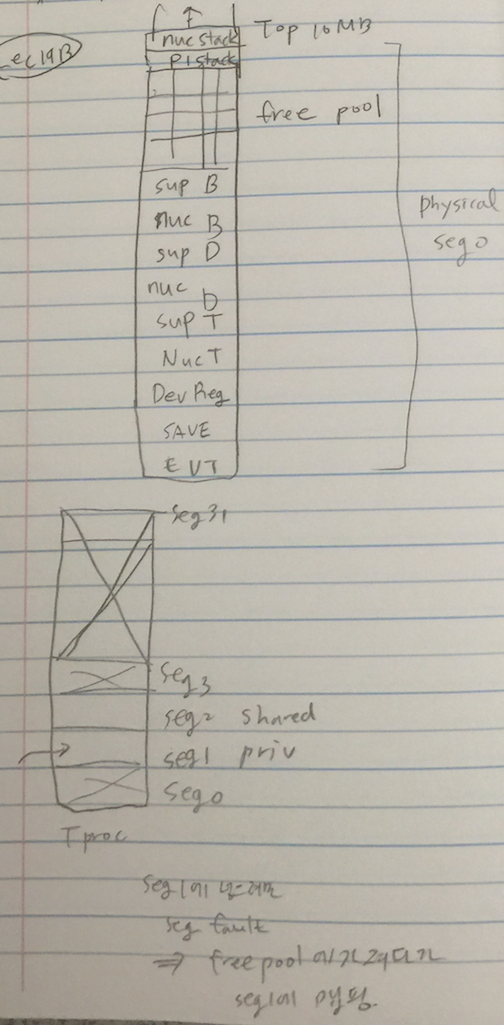 Lec 19B
Top 10MB
nuc stack
p1 stack
free pool
sup B
nuc B
sup D
nuc D
sup T
Nuc T
Dev Reg
SAVE
EVT
physical
seg 0
seg 31
seg 3
seg 2 shared
seg 1 priv
seg 0
Tproc
seg 1에
seg fault
⇒ free pool 에서
seg1에 맵핑.